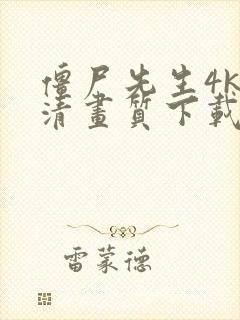 僵尸先生4k
清畫質下載
雷蒙德